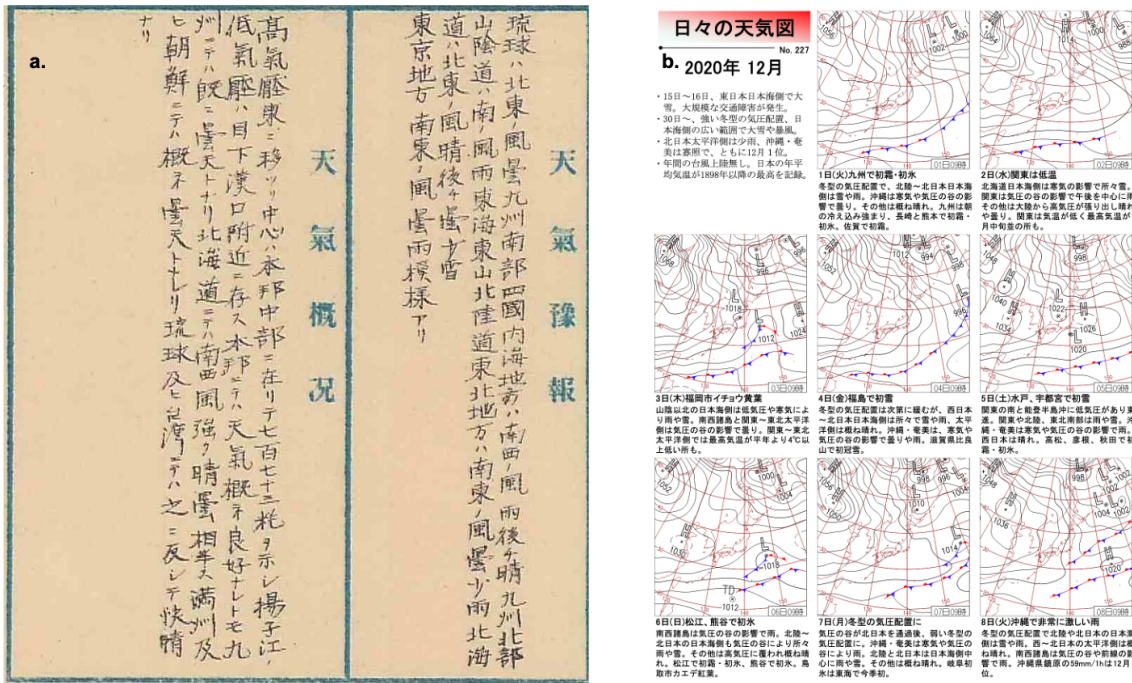 a.
天氣豫報
琉球ハ北東ノ風曇九州南部四國内海地方ハ南西ノ風雨後チ晴九州北部
山陰道ハ南ノ風雨東海東山北陸道東北地方ハ南東ノ風曇少雨北海
道ハ北東ノ風晴後チ曇少雪
東京地方 南東ノ風曇雨模様アリ
天氣概況
高氣壓東ニ移リ中心ハ本邦中部ニ在リテ七百七十三粍ヲ示シ揚子江ノ
低氣壓ハ目下漢口附近ニ存ス本邦ニテハ天氣概ネ良好ナレトモ九
州ニテハ既ニ曇天トナリ北海道ニテハ南西風強ク晴曇相半ス満州及
ヒ朝鮮ニテハ概ネ曇天トナレリ琉球及ヒ台湾ニテハ之ニ反シテ快晴
ナリ
日々の天気図
No. 227
b. 2020年 12月
・15日～16日、東日本日本海側で大
雪。大規模な交通障害が発生。
・30日～、強い冬型の気圧配置、日
本海側の広い範囲で大雪や暴風。
・北日本太平洋側は少雨、沖縄・奄
美は寡照で、ともに12月1位。
・年間の台風上陸無し。日本の年平
均気温が1898年以降の最高を記録。
01日09時
1日(火)九州で初霜・初氷
冬型の気圧配置で、北陸～北日本日本海
側は雪や雨。沖縄は寒気や気圧の谷の影
響で曇り。その他は概ね晴れ。九州は朝
の冷え込み強まり、長崎と熊本で初霜・
初氷。佐賀で初霜。
02日09時
2日(水)関東は低温
北海道日本海側は寒気の影響で所々雪。
関東は気圧の谷の影響で午後を中心に雨
その他は大陸から高気圧が張り出し晴れ
や曇り。関東は気温が低く最高気温が
月中旬並の所も。
03日09時
3日(木)福岡市イチョウ黄葉
山陰以北の日本海側は低気圧や寒気によ
り雨や雪。南西諸島と関東～東北太平洋
側は気圧の谷の影響で曇り。関東～東北
太平洋側では最高気温が平年より4℃以
上低い所も。
04日09時
4日(金)福島で初雪
冬型の気圧配置は次第に緩むが、西日本
～北日本日本海側は所々で雪や雨、太平
洋側は概ね晴れ。沖縄・奄美は、寒気や
気圧の谷の影響で曇りや雨。滋賀県比良
山で初冠雪。
05日09時
5日(土)水戸、宇都宮で初雪
関東の南と能登半島沖に低気圧があり東
進。関東や北陸、東北南部は雨や雪。沖
縄・奄美は寒気や気圧の谷の影響で雨。
西日本は晴れ。高松、彦根、秋田で初
霜・初氷。
06日09時
6日(日)松江、熊谷で初氷
南西諸島は気圧の谷の影響で雨。北陸～
北日本の日本海側も気圧の谷により所々
雨や雪。その他は高気圧に覆われ概ね晴
れ。松江で初霜・初氷、熊谷で初氷。鳥
取市カエデ紅葉。
07日09時
7日(月)冬型の気圧配置に
気圧の谷が北日本を通過後、弱い冬型の
気圧配置に。沖縄・奄美は寒気や気圧の
谷により雨。北陸と北日本は日本海側中
心に雨や雪。その他は概ね晴れ。岐阜初
氷は東海で今季初。
08日09時
8日(火)沖縄で非常に激しい雨
冬型の気圧配置で北陸や北日本の日本海
側は雪や雨。西～北日本の太平洋側は概
ね晴れ。南西諸島は気圧の谷や前線の影
響で雨。沖縄県鏡原の59mm/1hは12月1
位。